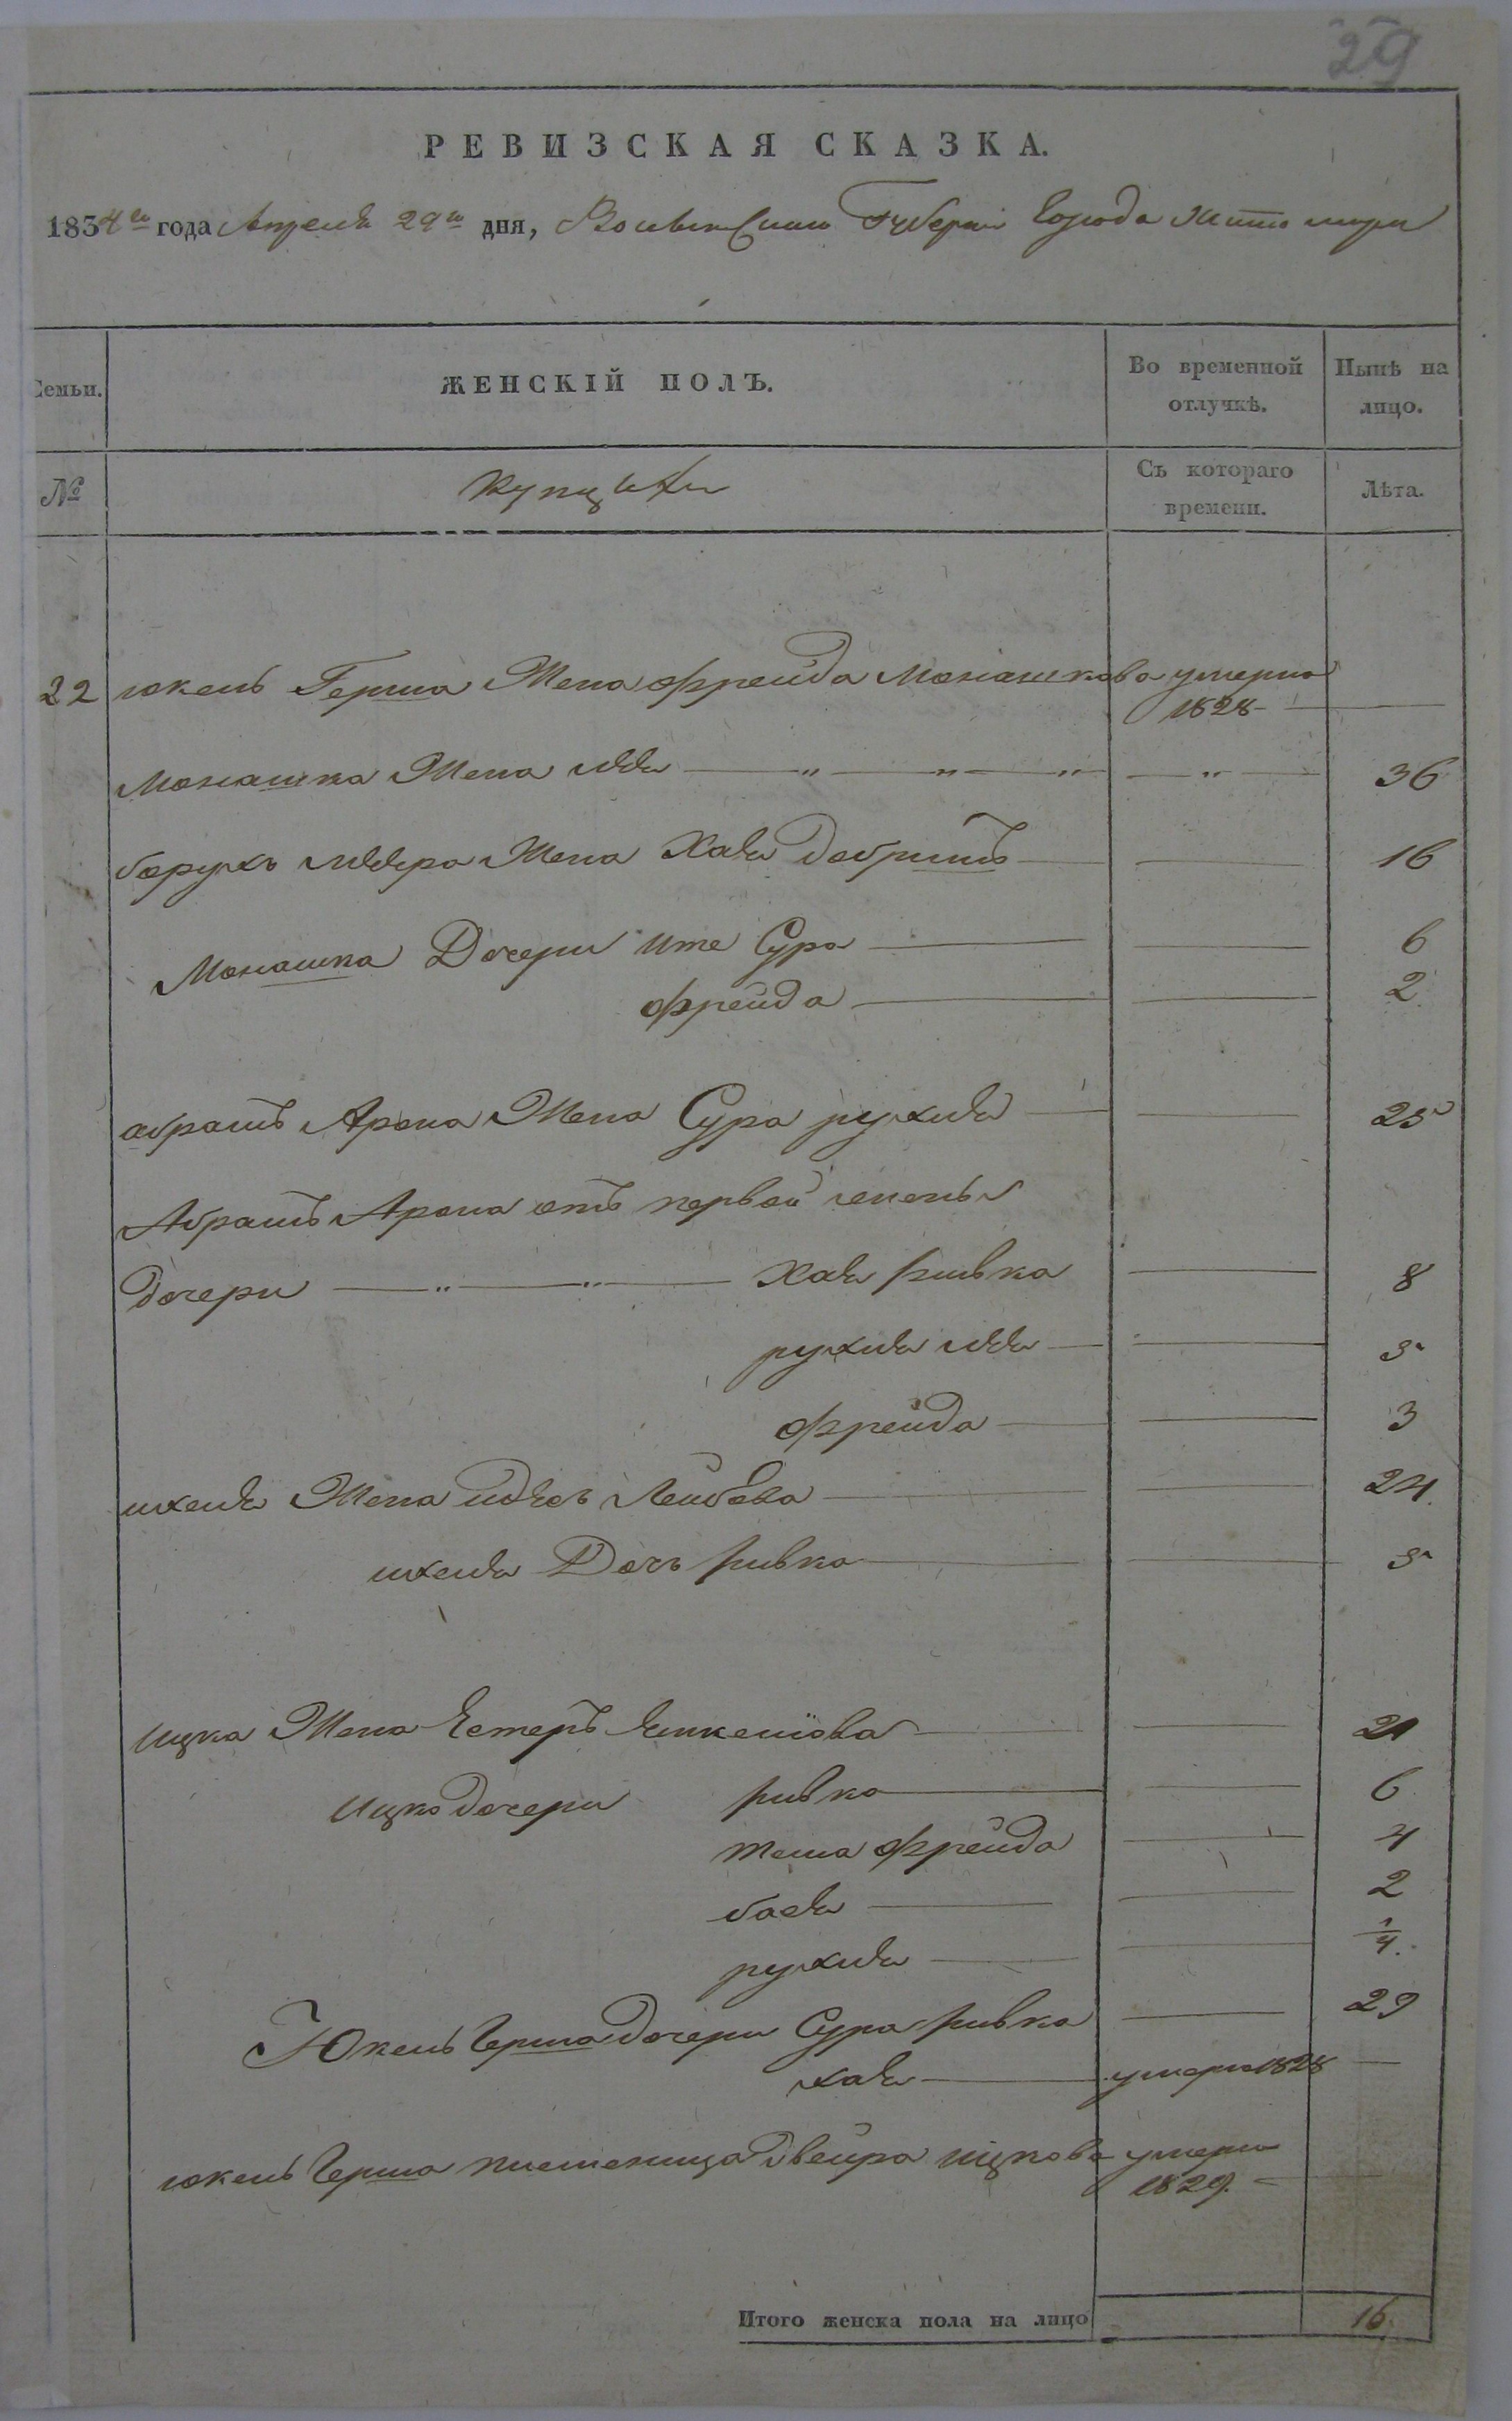 29
РЕВИЗСКАЯ СКАЗКА.
1834го года Апреля 29го дня, Волынской Губернии Города Житомира
Семьи. ЖЕНСКІЙ ПОЛЪ. Во временной отлучкѣ. Нынѣ на лицо.
№ Купцы Съ котораго времени. Лѣта.
22 юкель Герша Жена фрейда Монашкова умерла
1828
Монашка Жена 36
борухъ Жена Хая 16
Монашка Дочери ите Сура 6
фрейда 2
абрамъ Арона Жена Сура рухля 25
Абрамъ Арона отъ первой
дочери Хая ривка 8
рухля 5
фрейда 3
ихеля Жена Лейбова 24
ихеля Дочь ривка 5
ицка Жена Естеръ 21
ицка дочери ривка 6
фрейда 4
бася 2
рухля 1/4
Юкель Герша дочери Сура ривка 29
хая умерла 1828
юкель Герша племеница двейра ицкова умерла
1829.
Итого женска пола на лицо 16